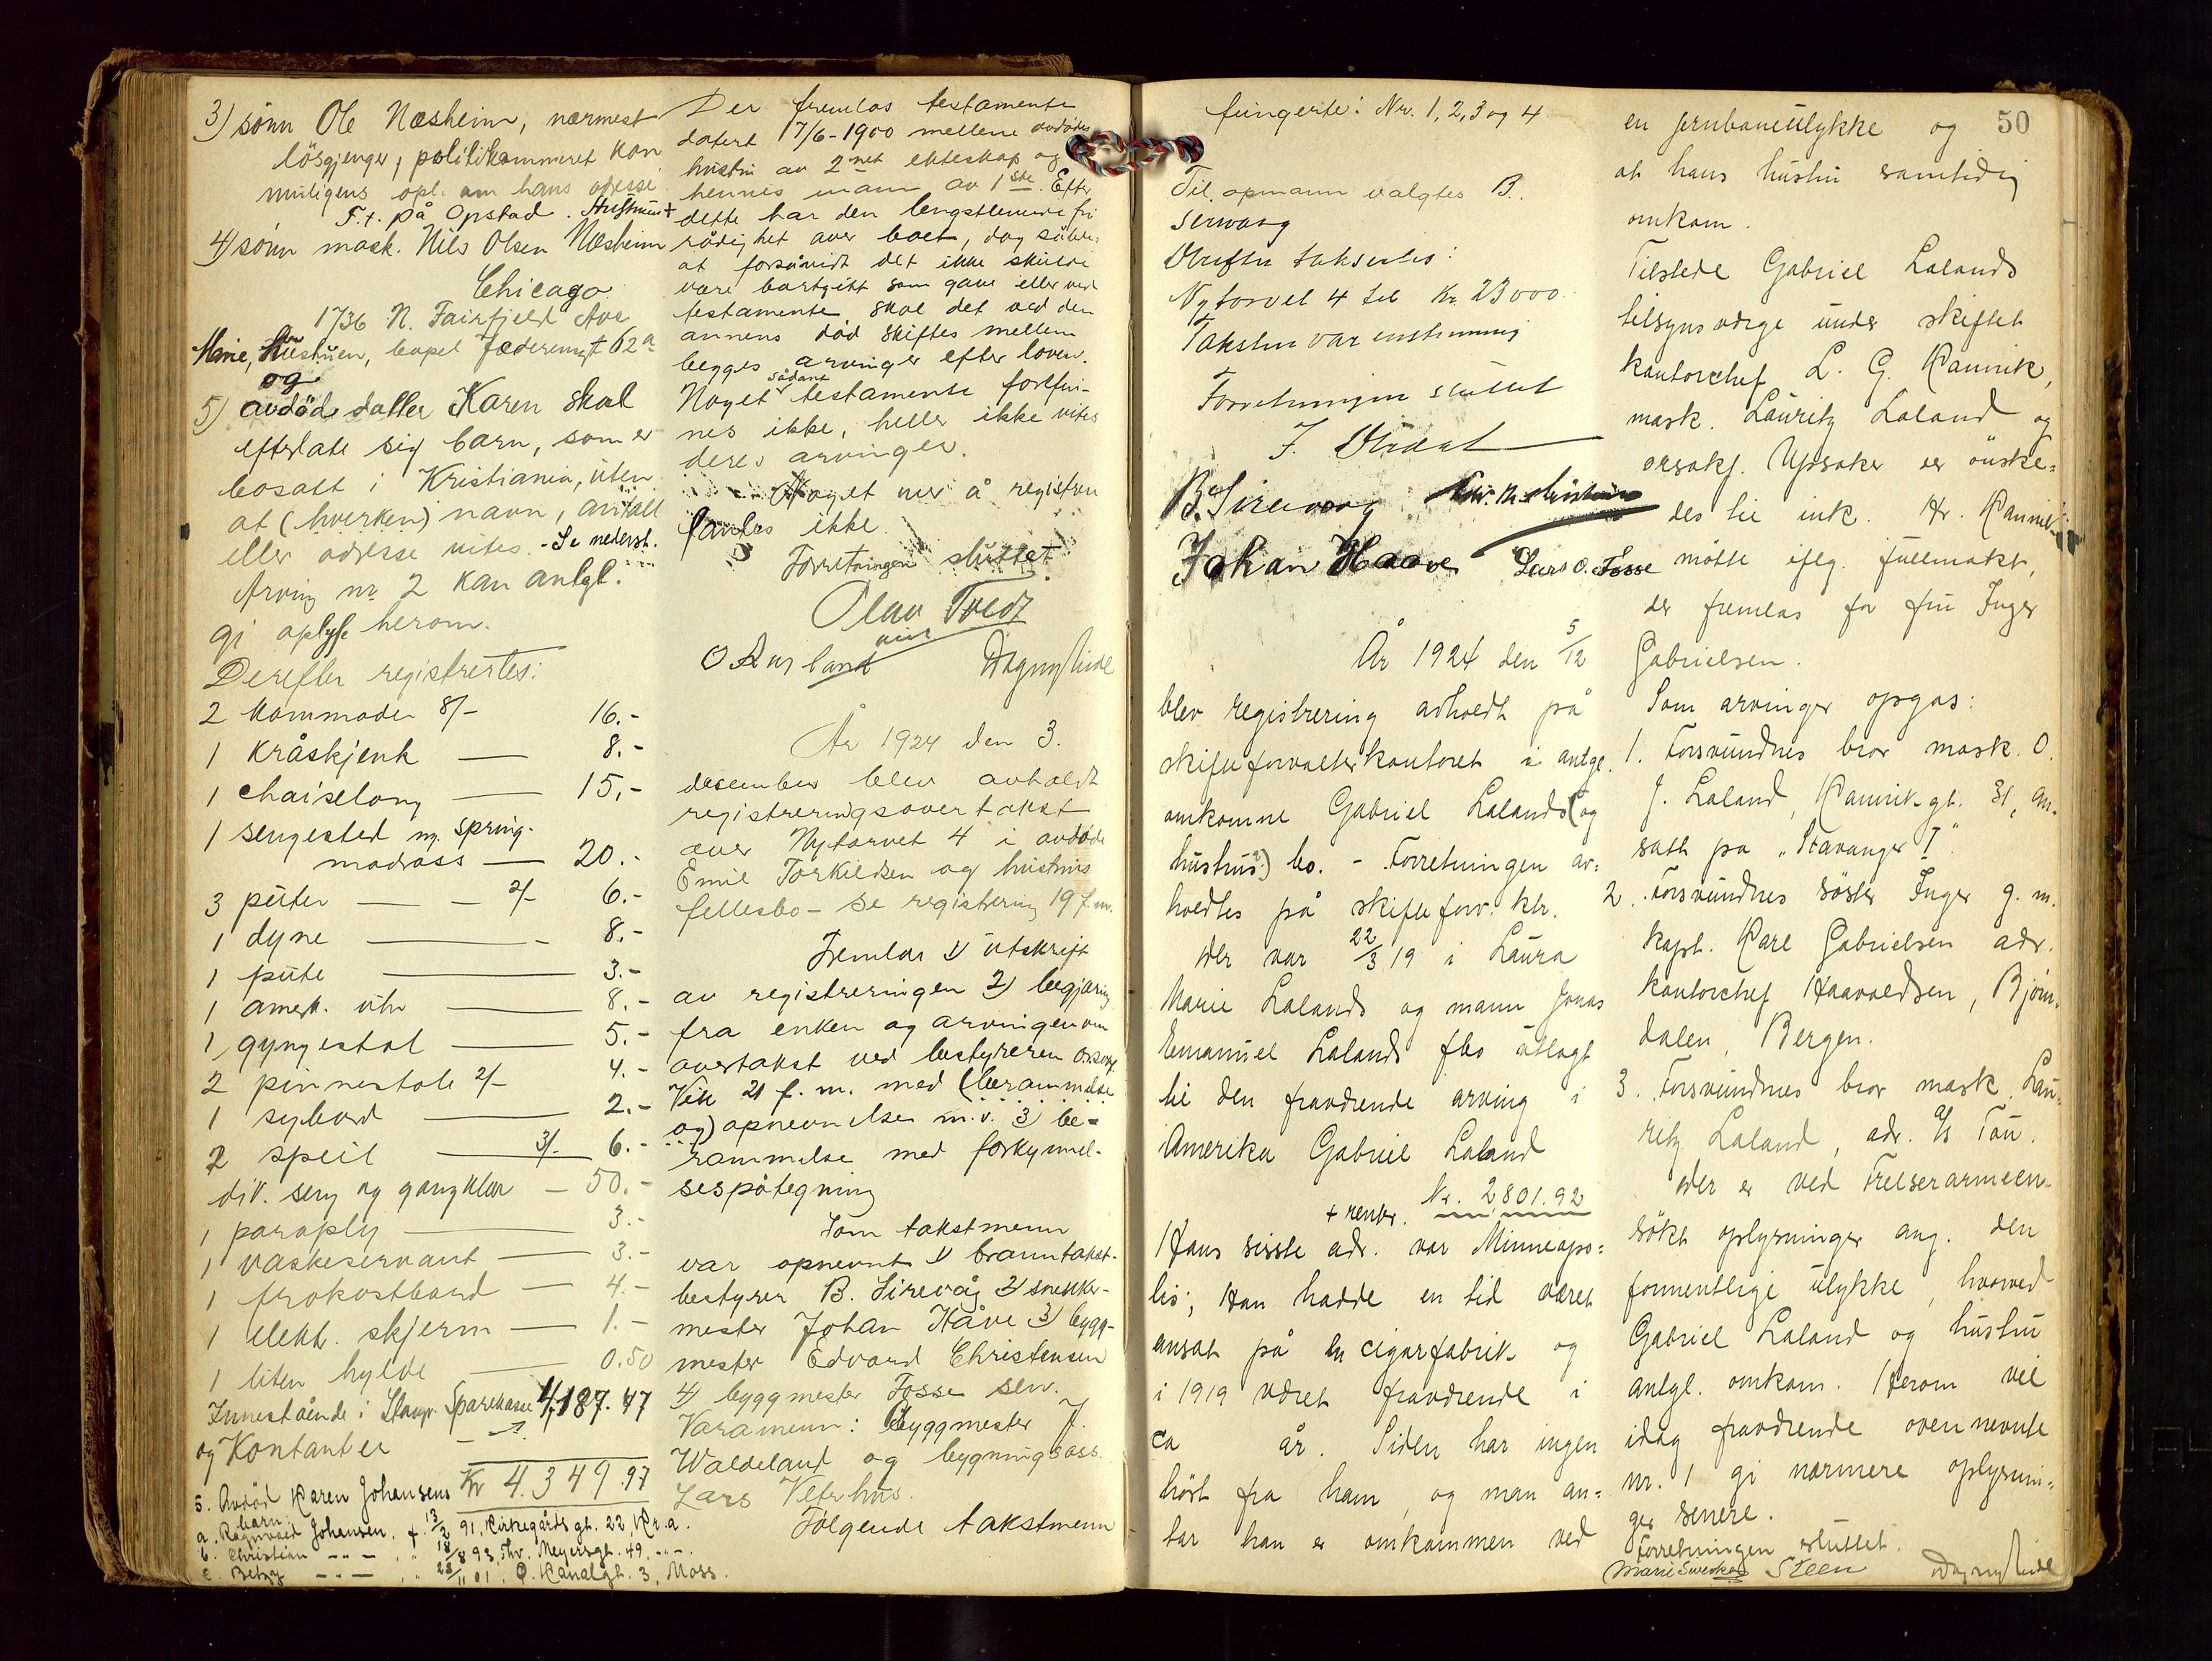 3) sönn Ole Næsheim, nærmest
lösgjenger, politikammeret kan
muligens opl. om hans adresse.
F.t. på Opstad.
4) sönn mask. Nils Olsen Næsheim
Chicago
1736 N. Fairfield Ave
Marie, hustruen, bopel Jæderengt 62a
og
5) avdöde datter Karen skal
efterlate sig barn, som er
bosatt i Kristiania, uten
at (hverken) navn, antall
eller adresse vites. - Se nederst.
Arving nr 2 kan antgl.
gi oplys. herom.
Derefter registrertes:
2 kommoder 8/- 16.-
1 kråskjenk — 8.-
1 chaiselong — 15,-
1 sengested m. spring-
madrass — 20.-
3 puter — - 2/- 6.-
1 dyne — - 8.-
1 pute — 3.-
1 amerk. uhr — 8.-
1 gyngestol — 5.-
2 pinnestole 2/- 4.-
1 sybord — 2.-
2 speil — 3/- 6.-
div. seng og gangklær — 50.-
1 paraply — 3.-
1 vaskeservant — 3.-
1 frokostbord — 4.-
1 elekt. skjerm — 1.-
1 liten hylde — 0.50
Innestående i Stavgr. Sparekasse 4,187.47
og Kontanter
Kr 4.349.97
5. Avdöd Karen Johansens
barn
a. Ragnvald Johansen, f. 13/3 91, Kirkegårdsgt. 22, Kr.a.
b. Christian -"- 18/8 93, Thv. Meyersgt. 49, -"-
c. Betzy -"- 28/11 01, Ö. Kanalgt. 3, Moss.
Der fremlas testamente
datert 17/6-1900 mellem avdödes
hustru av 2net ekteskap og
hennes mann av 1ste. Efter
dette har den lengstlevende fri
rådighet over boet, dog således
at forsåvidt det ikke skulde
være bortgitt som gave eller ved
testamente, skal det ved den
annens död skiftes mellem
begges arvinger efter loven.
Noget sådant testamente forefin-
nes ikke, heller ikke vites
deres arvinger.
Noget mer å registrere
fantes ikke.
Forretningen sluttet
Olav Tvedt
O Aurland Dagny Linde
År 1924 den 3.
desember blev avholdt
registreringsovertakst
over Nytorvet 4 i avdöde
Emil Torkildsen og hustrus
fellesbo - se registrering 19 f.m.
Fremlas 1) utskrift
av registreringen 2) begjæring
fra enken og arvingen om
overtakst ved bestyreren orsakf.
Vik 21 f.m. med (berammelse
og) opnevnelse m.v. 3) be-
rammelse med forkynnel-
sespåtegning
Som takstmenn
var opnevnt 1) branntakst-
bestyrer B. Sirevåg 2) snekker-
mester Johan Håve 3) bygg-
mester Edvard Christensen
4) byggmester Fosse sen.
Varamenn: Byggmester J.
Waldeland og bygningsass.
Lars Veterhus.
Följgende takstmenn
fungerte: Nr. 1, 2, 3 og 4
Til opmann valgtes B.
Sirevaag
Derefter takseres:
Nytorvet 4 til Kr. 23000.
Taksten var enstemmig
Forretningen sluttet
B. Sirevaag
Johan Haave Lars O. Fosse
År 1924 den 5/12
blev registrering avholdt på
skifteforvalterkontoret i antgl.
omkomne Gabriel Lalands (og
hustrus?) bo. - Forretningen av=
holdtes på skifteforv. ktr.
Der var 22/3 19 i Laura
Marie Lalands og mann Jonas
Emanuel Lalands fbo utlagt
til den fraværende arving i
Amerika Gabriel Laland
Kr. 2801.92
+ renter.
Hans sisste adr. var Minneapo=
lis; Han hadde en tid været
ansat på en cigarfabrik og
i 1919 været fraværende i
ca år. Siden har ingen
hört fra ham, og man an=
tar han er omkommen ved
50
en jernbaneulykke og
at hans hustru samtidig
omkom.
Tilstede Gabriel Lalands
tilsynsverge under skiftet
kontorchef L. G. Rannik,
mask. Lauritz Laland og
orsakf. Upsaker er önske=
des til ink. Fr. Rannik
mötte eflg. fullmakt,
der fremlas for fru Inger
Gabrielsen.
Som arvinger opgas:
1. Forsvundnes bror mask. O.
J. Laland, Rannik.gt. 31, an=
satt på "Stavanger I"
2. Forsvundnes söster Inger g. m.
kapt. Karl Gabrielsen adr.
kontorchef Haavoldsen, Björn-
dalen, Bergen.
3. Forsvundnes bror mask. Lau=
ritz Laland, adr. d/s Tau.
Der er ved Frelserarmeen
sökt oplysninger ang. den
formentlige ulykke, hvorved
Gabriel Laland og hustru
antgl. omkom. Herom vil
idag fraværende ovennevnte
nr. 1 gi nærmere oplysnin=
ger senere.
Forretningen sluttet.
Steen Dagny Linde